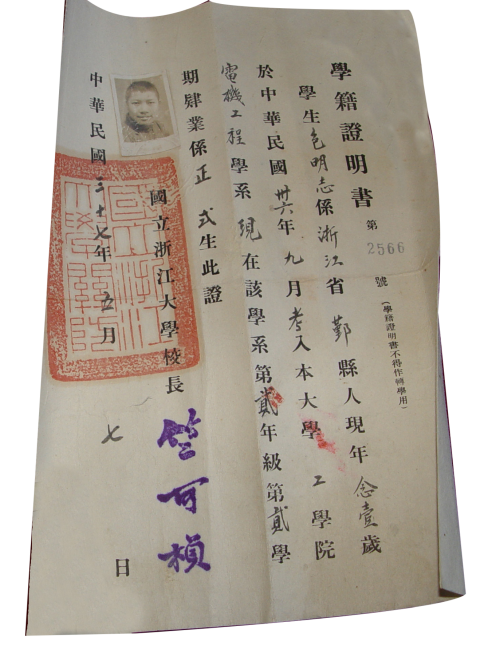 學籍證明書
第 2566 號
(學籍證明書不得作轉學用)
學生包明志係浙江省鄞縣人現年念壹歲
於中華民國卅六年九月考入本大學工學院
電機工程學系現在該學系第貳年級第貳學
期肄業係正式生此證
國立浙江大學校長 竺可楨
中華民國三十七年五月七日